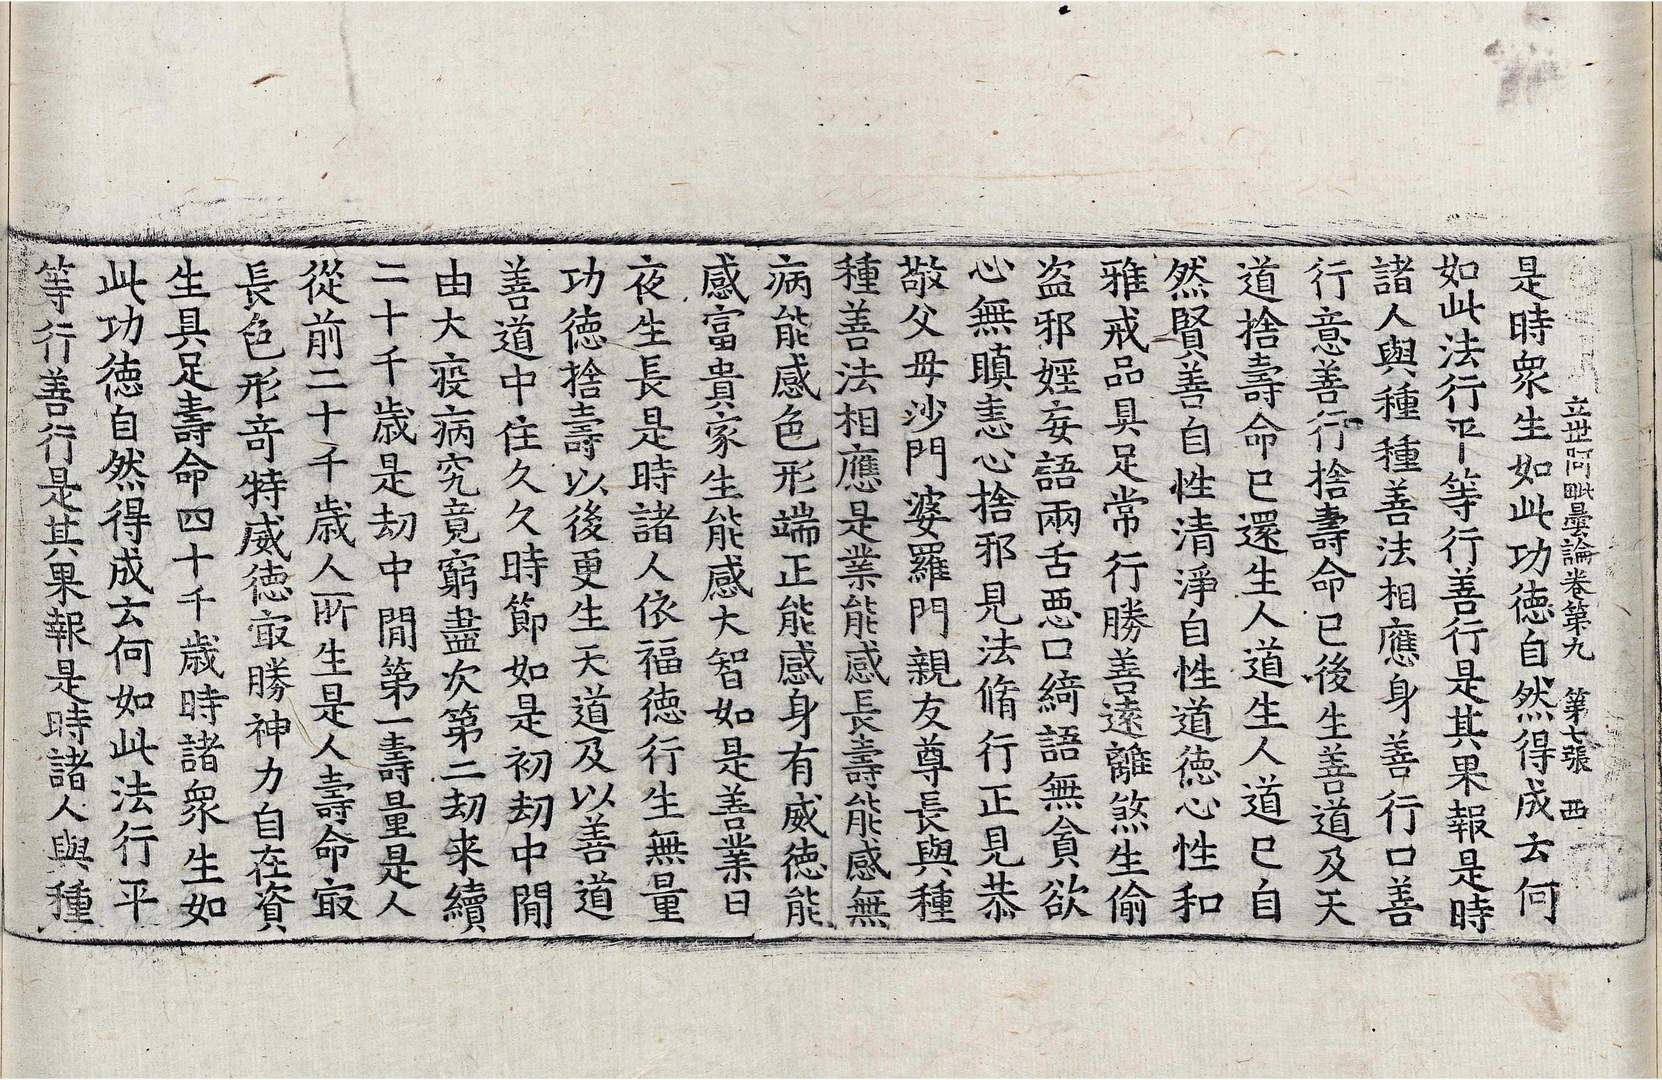 立世阿毗曇論卷第九 第七張 西
是時衆生如此功德自然得成云何
如此法行平等行善行是其果報是時
諸人與種種善法相應身善行口善
行意善行捨壽命已後生善道及天
道捨壽命已還生人道生人道已自
然賢善自性清淨自性道德心性和
雅戒品具足常行勝善遠離煞生偷
盗邪婬妄語兩舌惡口綺語無貪欲
心無瞋恚心捨邪見法脩行正見恭
敬父母沙門婆羅門親友尊長與種
種善法相應是業能感長壽能感無
病能感色形端正能感身有威德能
感富貴家生能感大智如是善業日
夜生長是時諸人依福德行生無量
功德捨壽以後更生天道及以善道
善道中住久久時節如是初劫中間
由大疫病究竟窮盡次第二劫来續
二十千歲是劫中間第一壽量是人
從前二十千歲人所生是人壽命㝡
長色形竒特威德㝡勝神力自在資
生具足壽命四十千歲時諸衆生如
此功德自然得成云何如此法行平
等行善行是其果報是時諸人與種